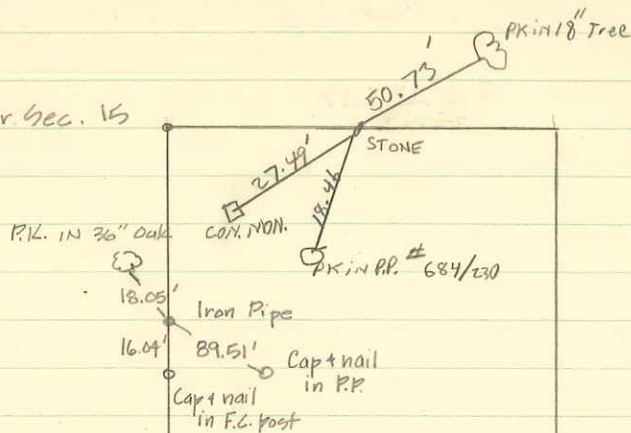 PK in 18" Tree
50.73'
r. Sec. 15
STONE
27.49'
18.46
CON. MON.
P.K. IN 36" Oak
PK in P.P. # 684/230
18.05'
Iron Pipe
16.04'
89.51'
Cap & nail
in P.P.
Cap & nail
in F.C. post